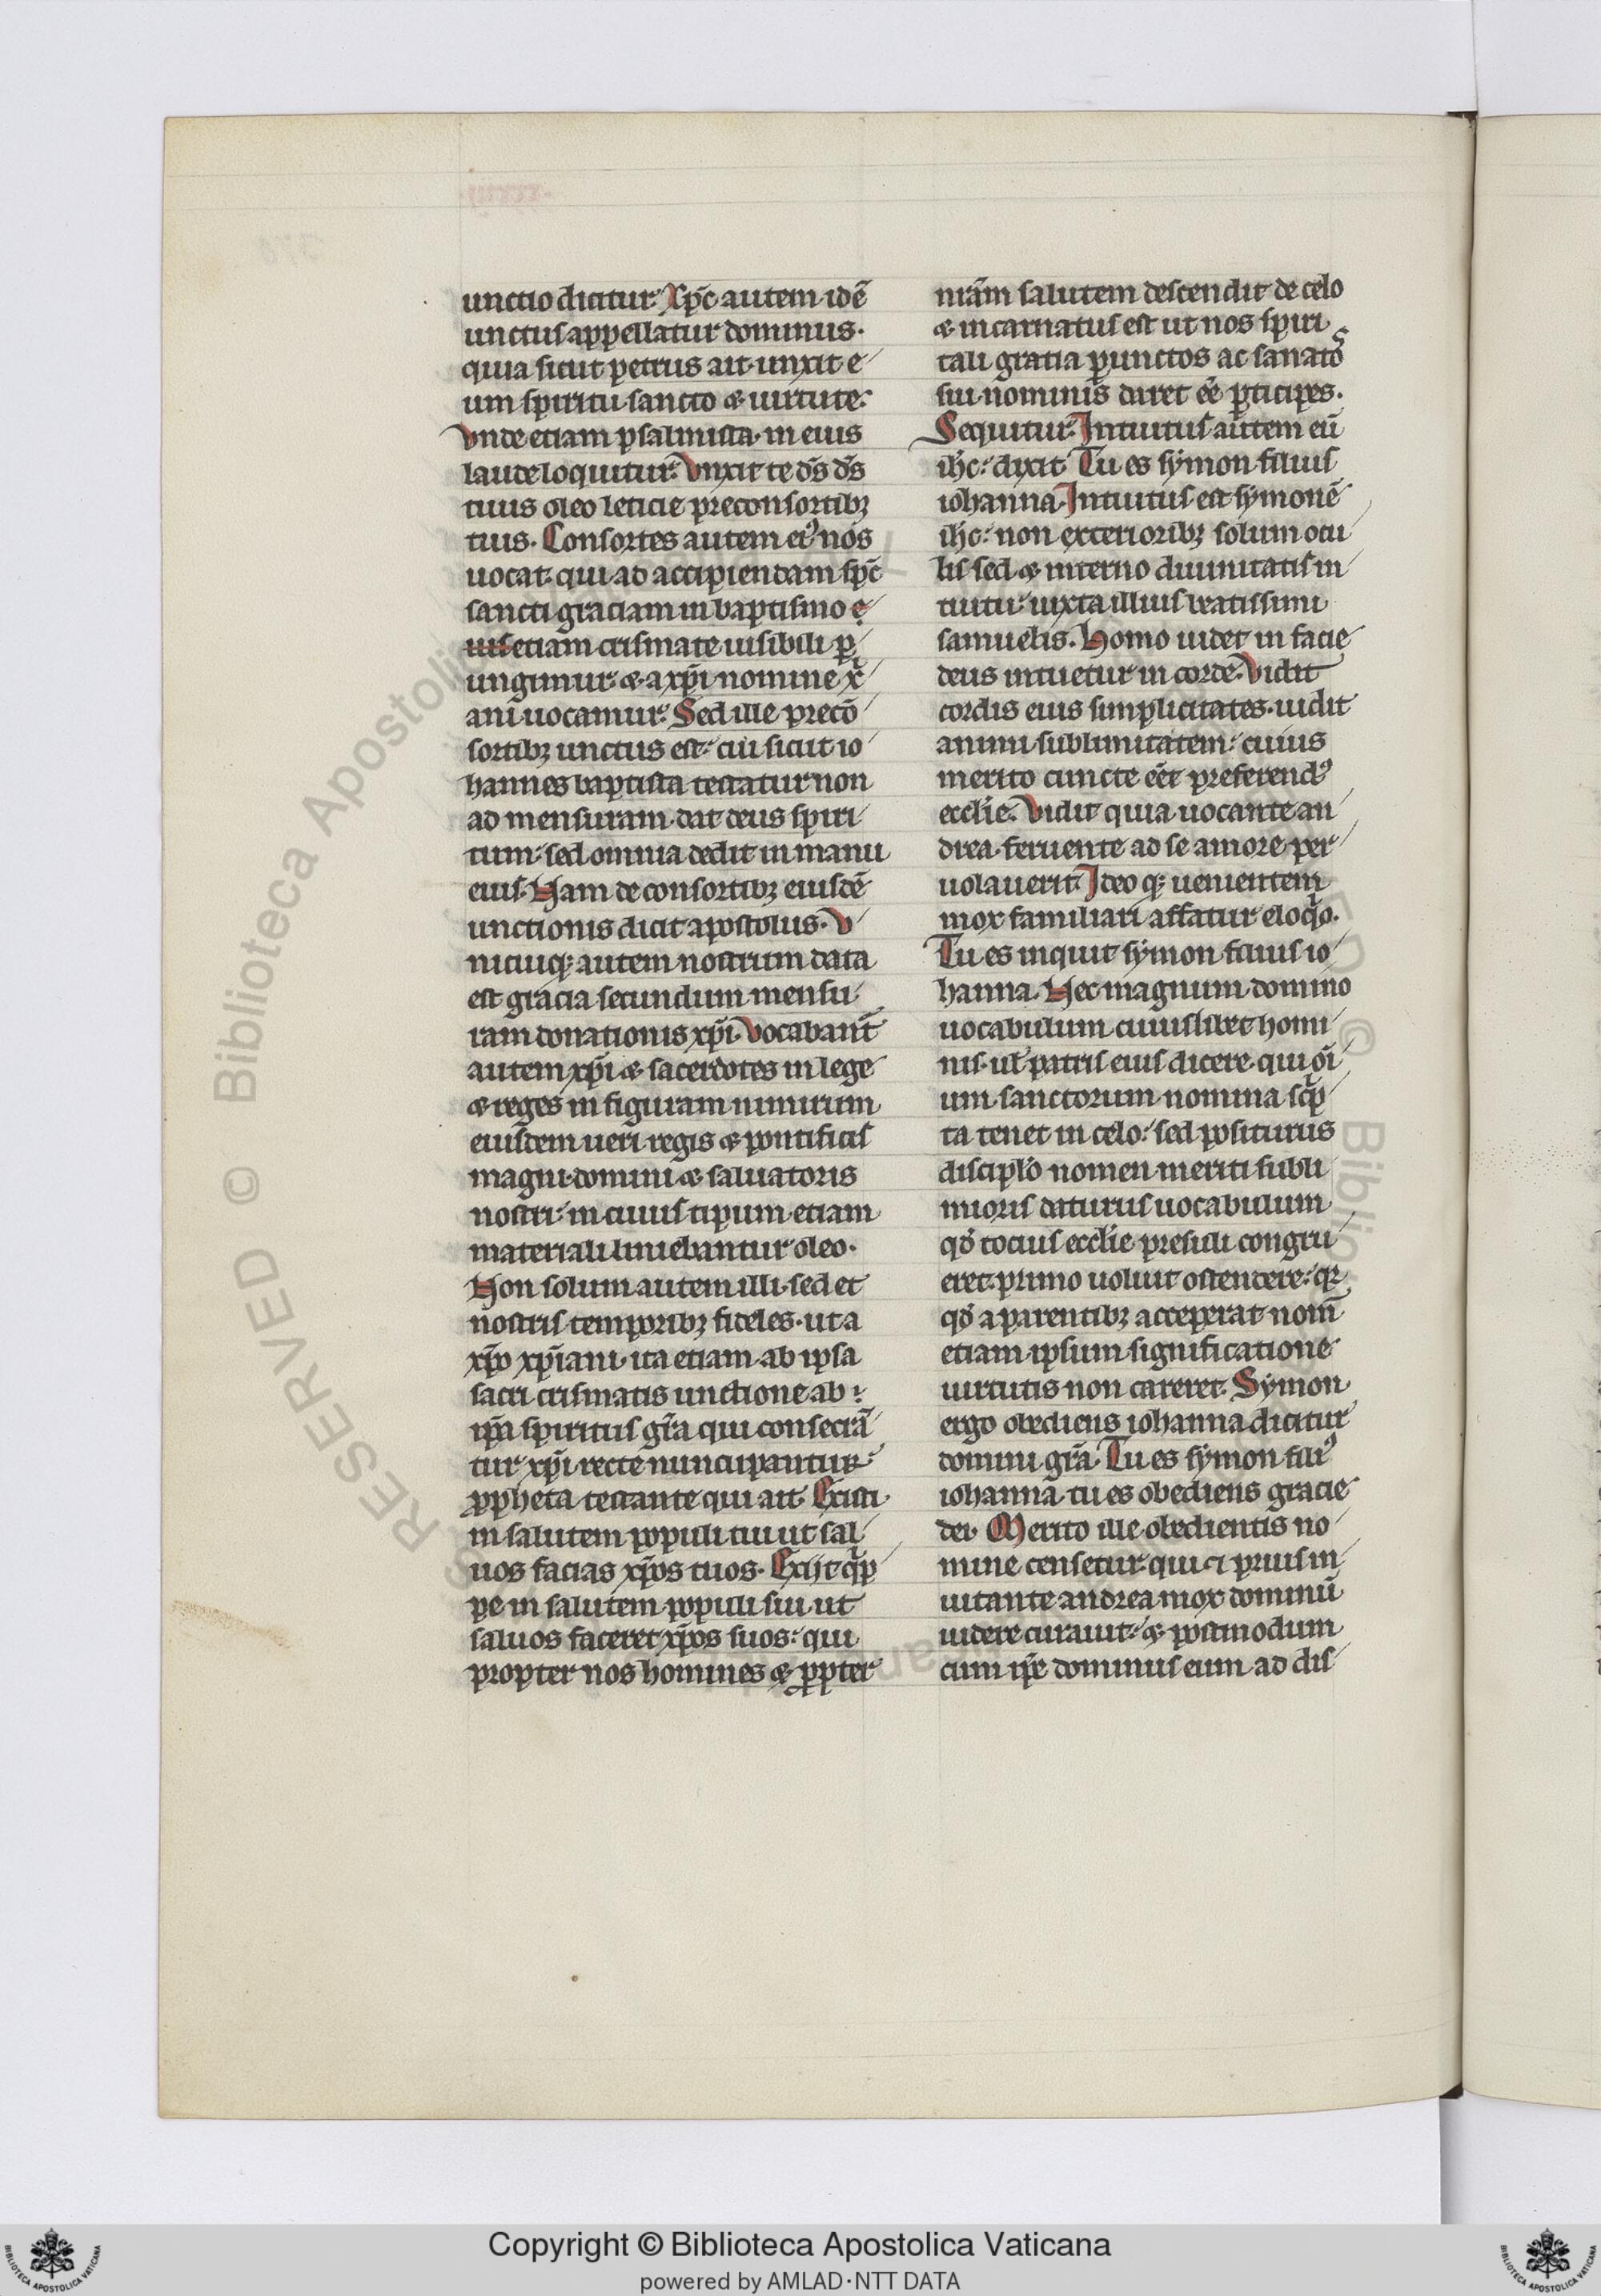 unctio dicitur. Xp̄c autem idē
unctus appellatur dominus.
quia sicut petrus ait unxit e
um spiritu sancto & uirtute.
Vnde etiam psalmista in eius
laude loquitur. Vnxit te ds̄ ds̄
tuus oleo leticie preconsortibꝫ
tuis. Consortes autem eiꝰ nos
uocat qui ad accipiendam spc̄
sancti graciam in baptismo e
ius etiam crismate uisibili ꝑ
ungimur & a xp̄i nomine xͥ
ani uocamur. Sed ille precō
sortibꝫ unctus est cui sicut io
hannes baptista testatur non
ad mensuram dat deus spiri
tum sed omnia dedit in manu
eius. Nam de consortibꝫ eiusdē
unctionis dicit apostolus. V
nicuiqꝫ autem nostrum data
est gracia secundum mensu
ram donationis xp̄i. Vocabant̄
autem xp̄i & sacerdotes in lege
& reges in figuram nimirum
eiusdem ueri regis & pontificis
magni domini & saluatoris
nostri in cuius tipum etiam
materiali liniebantur oleo.
Non solum autem illi sed et
nostris temporibꝫ fideles ut a
xp̄o xp̄iani ita etiam ab ipsa
sacri crismatis unctione ab
ip̄a spiritus gr̄a qui consecrā
tur xp̄i recte nuncupantur
ꝓpheta testante qui ait. Existi
in salutem populi tui ut sal
uos facias xp̄os tuos. Exijt qͥp
pe in salutem populi sui ut
saluos faceret xp̄os suos qui
propter nos homines & ꝓpter
nr̄am salutem descendit de celo
& incarnatus est ut nos spiri
tali gratia ꝑunctos ac sanatos
sui nominis daret eē ꝑticipes.
Sequitur. Intuitus autem eū
ihc̄ dixit Tu es symon filius
iohanna. Intuitus est symonē
ihc̄ non exterioribꝫ solum ocu
lis sed & interno diuinitatis in
tuitu iuxta illius beatissimi
samuelis. Homo uidet in facie
deus intuetur in corde. Vidit
cordis eius simplicitates uidit
animi sublimitatem cuius
merito cuncte eēt preferendꝰ
eccl̄ie. Vidit quia uocante an
drea feruente ad se amore per
uolauerit. Ideo qꝫ uenientem
mox familiari affatur eloqͦo.
Tu es inquit symon filius io
hanna. Nec magnum domino
uocabulum cuiuslibet homi
nis ul̄ patris eius dicere qui oī
um sanctorum nomina scͥp
ta tenet in celo sed positurus
discipl̄o nomen meriti subli
mioris daturus uocabulum
qd̄ tocius eccl̄ie presuli congru
eret primo uoluit ostendere qꝛ
qd̄ a parentibꝫ acceperat nom̄
etiam ipsum significatione
uirtutis non careret. Symon
ergo obediens iohanna dicitur
domini gr̄a. Tu es symon filiꝰ
iohanna tu es obediens gracie
dei. Merito ille obedientis no
mine censetur qui ⁊ prius in
uitante andrea mox dominū
uidere curauit & postmodum
cum ip̄e dominus eum ad dis
RESERVED © Biblioteca Apostolica
Copyright © Biblioteca Apostolica Vaticana
powered by AMLAD·NTT DATA